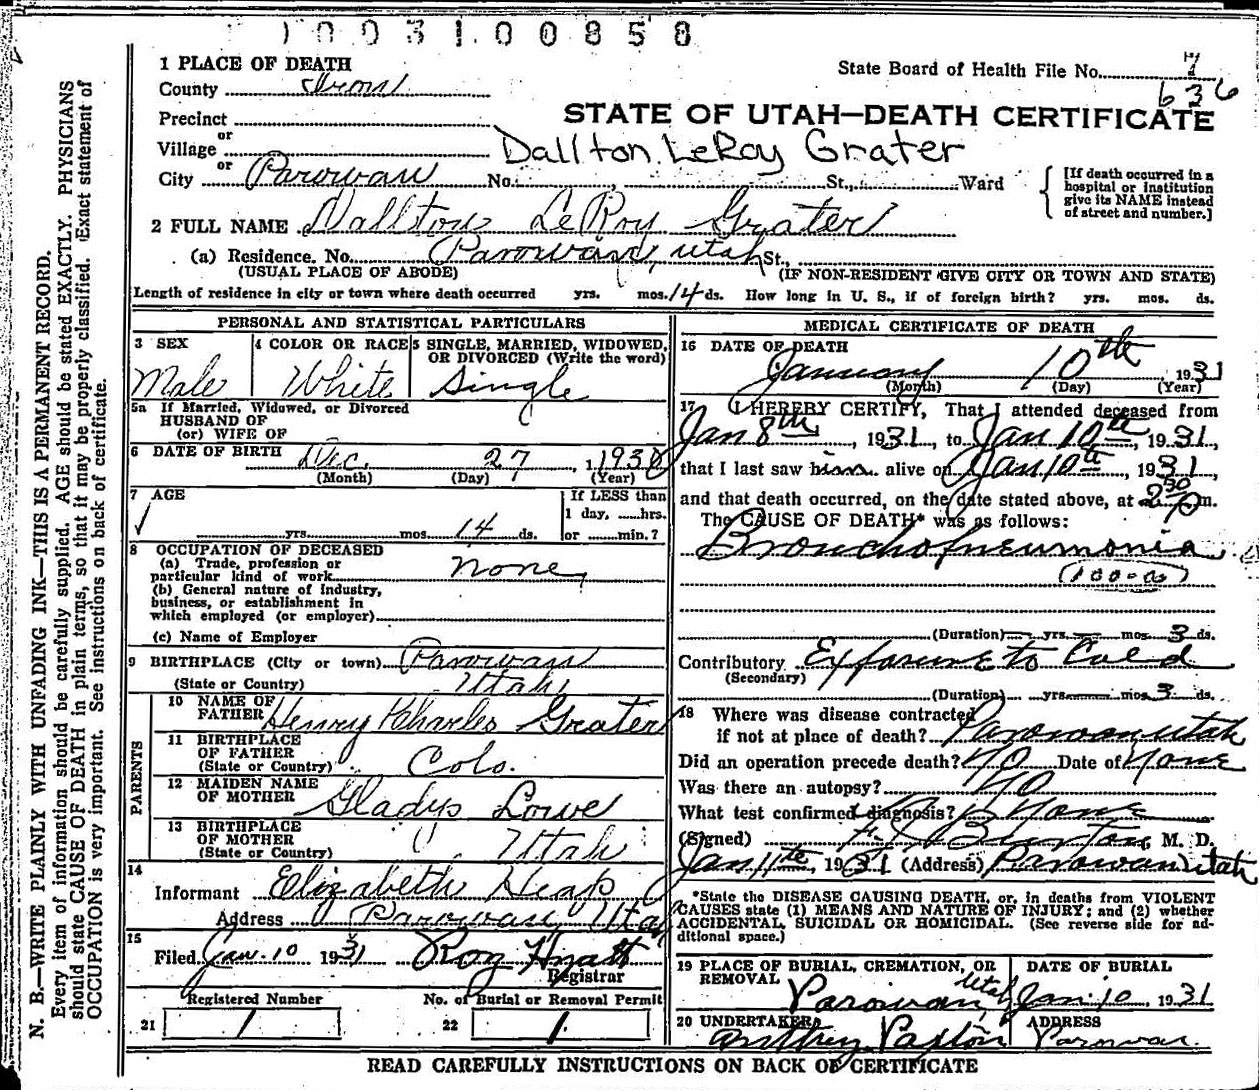 1003100858
1 PLACE OF DEATH
State Board of Health File No. 7
County Iron
636
STATE OF UTAH—DEATH CERTIFICATE
Precinct
or
Village
Dallton LeRoy Grater
or
City Parowan No. St., Ward
[If death occurred in a hospital or institution give its NAME instead of street and number.]
2 FULL NAME Dallton LeRoy Grater
(a) Residence. No. Parowan, Utah St.,
(USUAL PLACE OF ABODE) (IF NON-RESIDENT GIVE CITY OR TOWN AND STATE)
Length of residence in city or town where death occurred yrs. mos. 14 ds. How long in U. S., if of foreign birth? yrs. mos. ds.
PERSONAL AND STATISTICAL PARTICULARS
3 SEX
Male
4 COLOR OR RACE
White
5 SINGLE, MARRIED, WIDOWED, OR DIVORCED (Write the word)
Single
5a If Married, Widowed, or Divorced
HUSBAND OF
(or) WIFE OF
6 DATE OF BIRTH Dec. 27, 1930
(Month) (Day) (Year)
7 AGE
If LESS than
1 day, hrs.
yrs. mos. 14 ds. or min.?
8 OCCUPATION OF DECEASED
(a) Trade, profession or
particular kind of work None
(b) General nature of Industry,
business, or establishment in
which employed (or employer)
(c) Name of Employer
9 BIRTHPLACE (City or town) Parowan
(State or Country) Utah
PARENTS
10 NAME OF FATHER Henry Charles Grater
11 BIRTHPLACE OF FATHER
(State or Country) Colo.
12 MAIDEN NAME OF MOTHER Gladys Lowe
13 BIRTHPLACE OF MOTHER
(State or Country) Utah
14
Informant Elizabeth Heap
Address Parowan Utah
15
Filed Jan. 10 1931 Roy Hyatt
Registrar
Registered Number No. of Burial or Removal Permit
21 1 22 1
MEDICAL CERTIFICATE OF DEATH
16 DATE OF DEATH
January 10th, 1931
(Month) (Day) (Year)
17 I HEREBY CERTIFY, That I attended deceased from
Jan 8th, 1931, to Jan 10th, 1931,
that I last saw him alive on Jan 10th, 1931,
and that death occurred, on the date stated above, at 2:30 p m.
The CAUSE OF DEATH* was as follows:
Bronchopneumonia
(100-a)
(Duration) yrs. mos. 3 ds.
Contributory Exposure to Cold
(Secondary)
(Duration) yrs. mos. 3 ds.
18 Where was disease contracted
if not at place of death? Parowan Utah
Did an operation precede death? No Date of None
Was there an autopsy? No
What test confirmed diagnosis? None
(Signed) Burton, M. D.
Jan 11th, 1931 (Address) Parowan Utah
*State the DISEASE CAUSING DEATH, or, in deaths from VIOLENT
CAUSES state (1) MEANS AND NATURE OF INJURY; and (2) whether
ACCIDENTAL, SUICIDAL OR HOMICIDAL. (See reverse side for ad-
ditional space.)
19 PLACE OF BURIAL, CREMATION, OR REMOVAL
Parowan Utah
DATE OF BURIAL
Jan. 10, 1931
20 UNDERTAKER
Paxton
ADDRESS
Parowan
READ CAREFULLY INSTRUCTIONS ON BACK OF CERTIFICATE
N. B.—WRITE PLAINLY WITH UNFADING INK—THIS IS A PERMANENT RECORD.
Every item of information should be carefully supplied. AGE should be stated EXACTLY. PHYSICIANS
should state CAUSE OF DEATH in plain terms, so that it may be properly classified. Exact statement of
OCCUPATION is very important. See instructions on back of certificate.